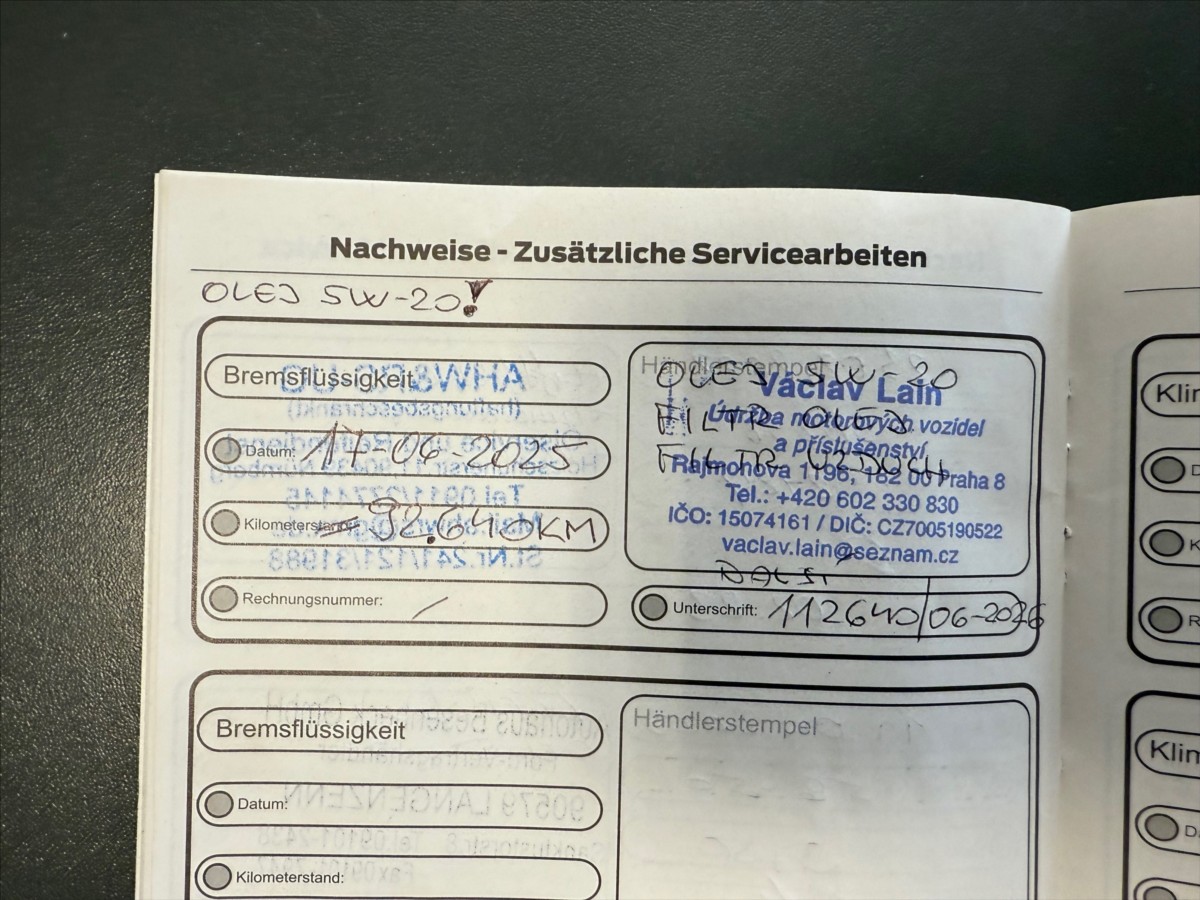 Nachweise - Zusätzliche Servicearbeiten
OLEJ 5W-20!
Bremsflüssigkeit
Datum: 17-06-2025
Kilometerstand: 92.640KM
Rechnungsnummer: /
Händlerstempel
OLEJ 5W-20
Václav Lain
FILTR OLEJ
Údržba motorových vozidel
a příslušenství
FILTR VZDUCH
Rajmonova 1196, 182 00 Praha 8
Tel.: +420 602 330 830
IČO: 15074161 / DIČ: CZ7005190522
vaclav.lain@seznam.cz
DALSI
Unterschrift: 112640/06-2026
Bremsflüssigkeit
Datum:
Kilometerstand:
Händlerstempel
Klin
D
K
R
Klin
Da